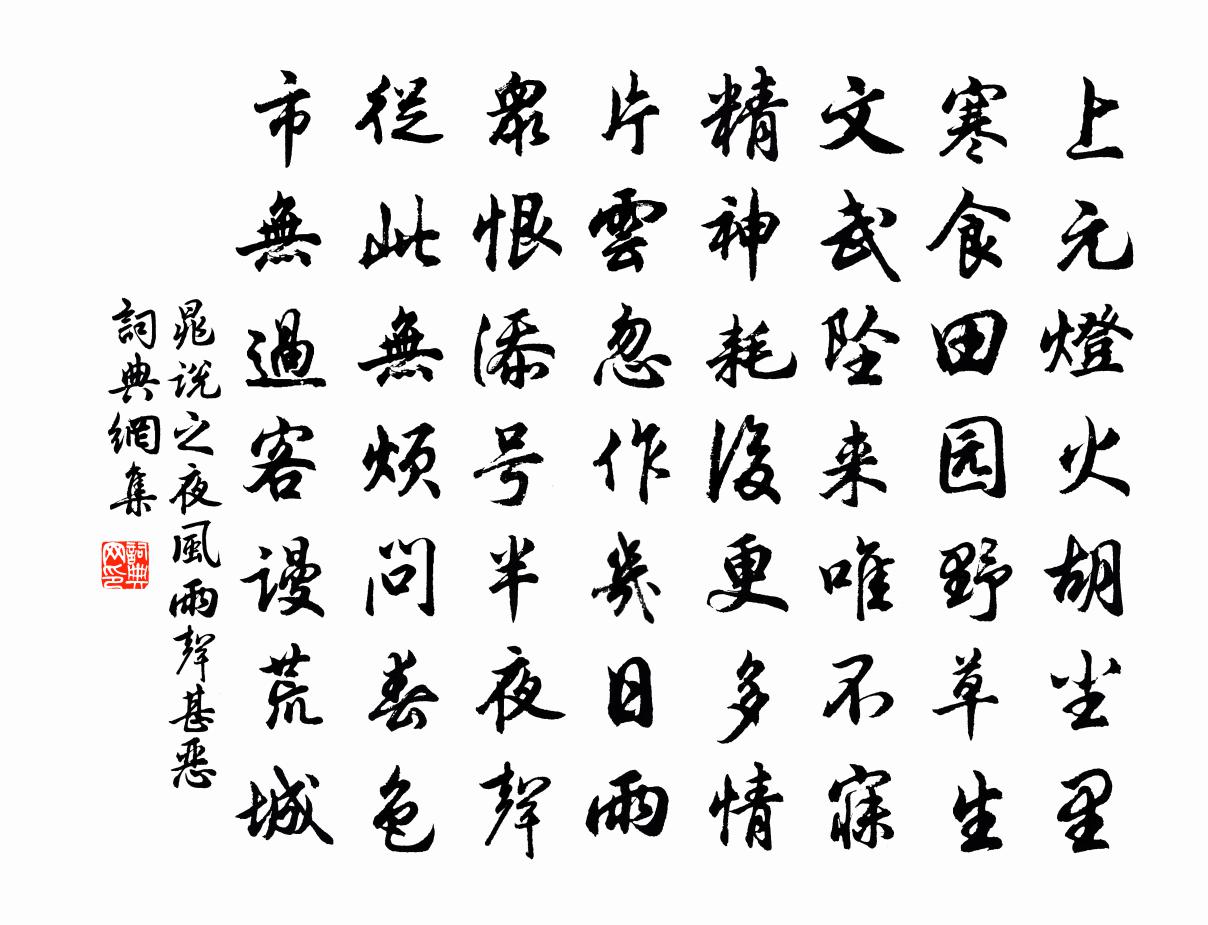 上元燈火胡尘里
寒食田园野草生
文武坠来唯不寐
精神耗後更多情
片雲忽作幾日雨
衆恨添号半夜聲
從此無煩問春色
市無過客谩荒城
晁说之夜風雨聲甚惡
詞典網集
詞典网印